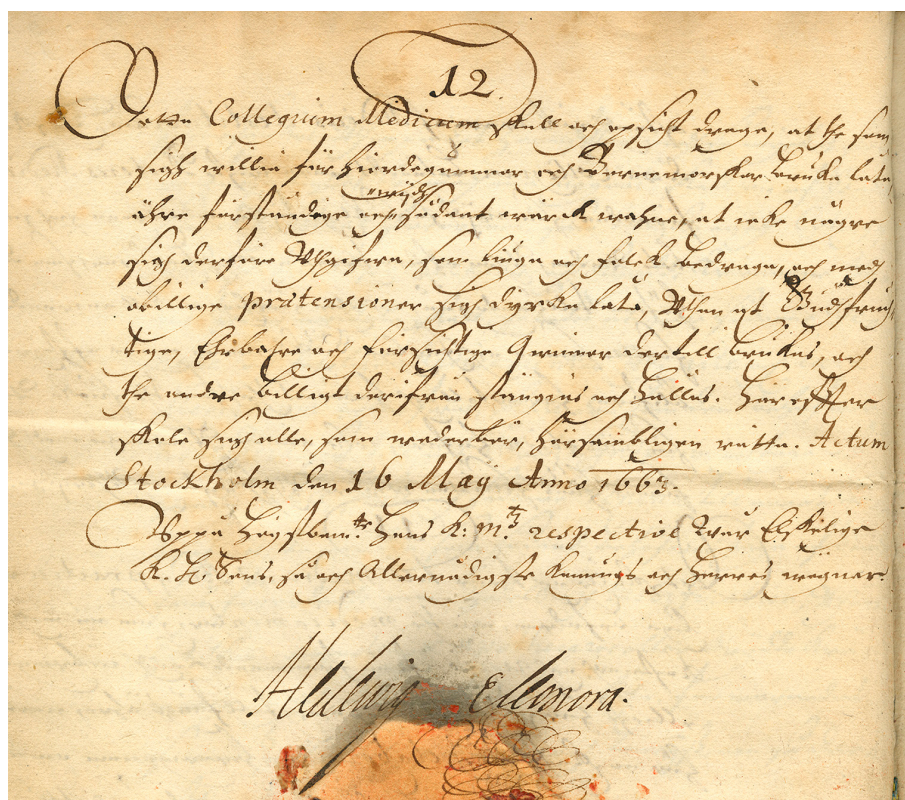 12
Dette Collegium Medicum skall och opsicht draga, at the som
sigh willia för Jordegummor och Barnemorskor bruka låta,
ähre förståndige och widh sådant wärck wahne, at icke någre
sigh derföre Uthgifwa, som liuga och folck bedraga, och medh
obillige prætensioner sigh dyrka låta, Uthan at Gudhfruch,
tige, Ehrbahre och försichtige Qwinnor dertill brukas, och
the andre billigt derifrån stängias och hållas. Hareffter
skole sigh alle, som wederbör, hörsambligen rätta. Actum
Stockholm den 16 Maÿ Anno 1663.
Uppå Högstbem:te Hans K: M:tz respective Wår Elskelige
K. H. Sons, så och Allernådigste Konungs och Herres wägnar.
Hedewig Eleonora.